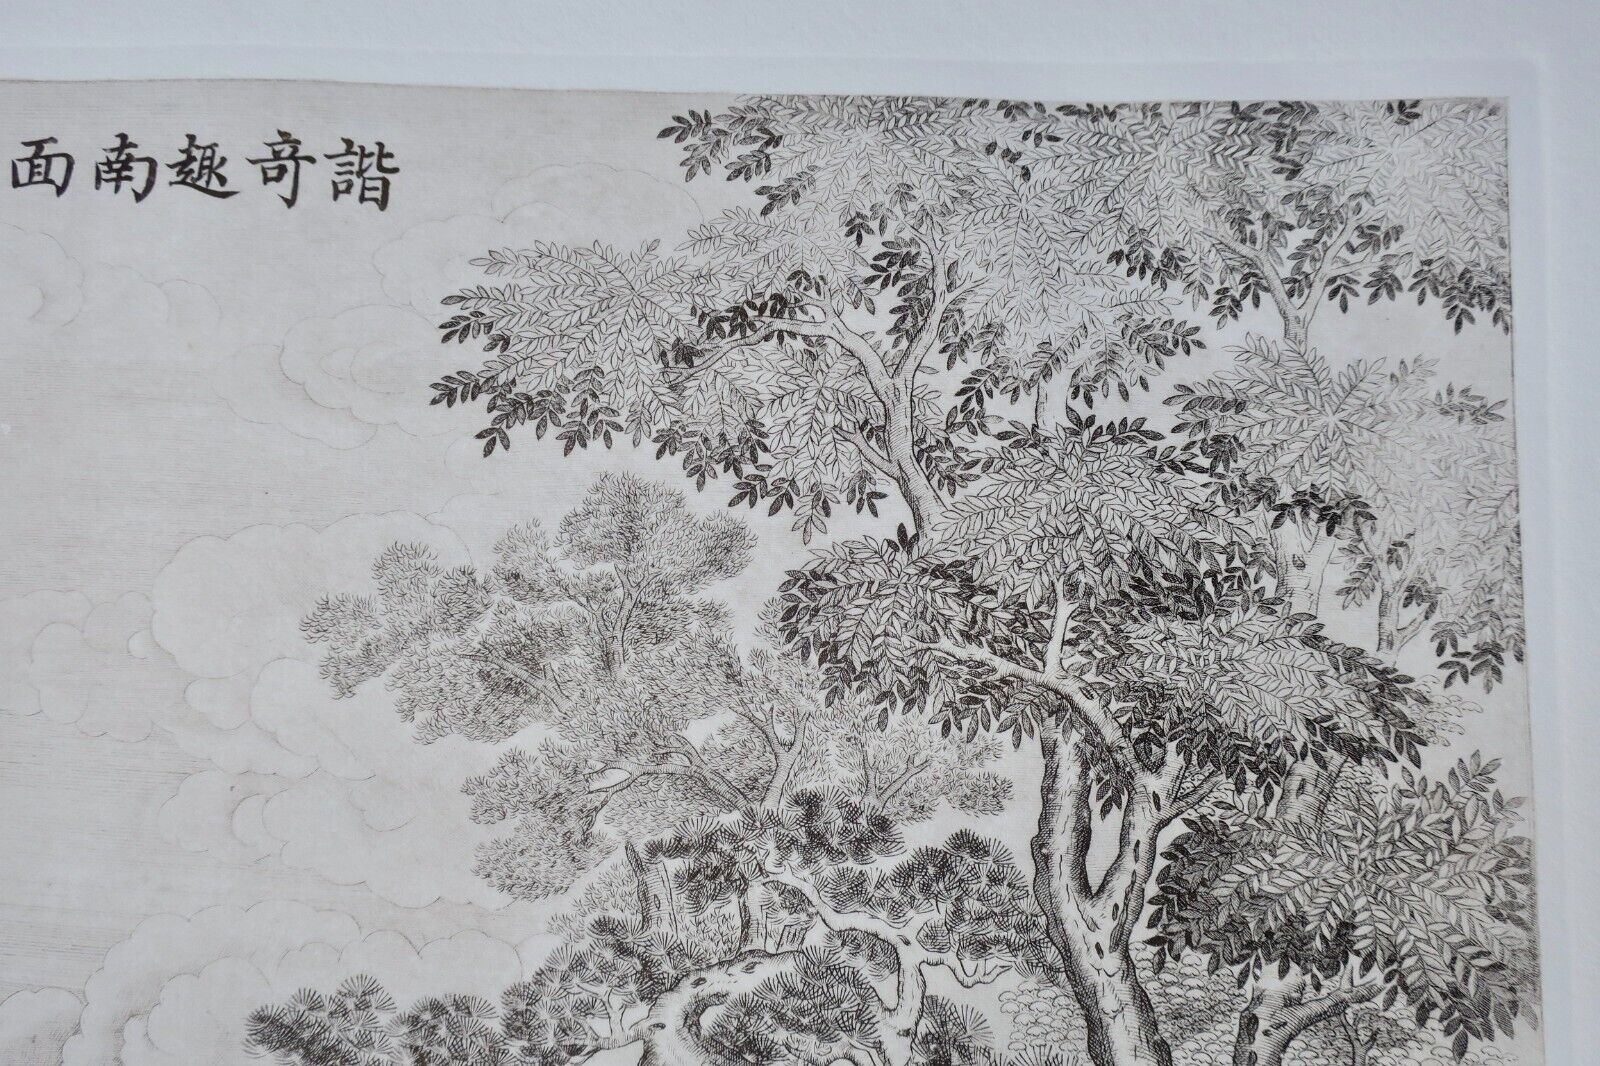 諧奇趣南面